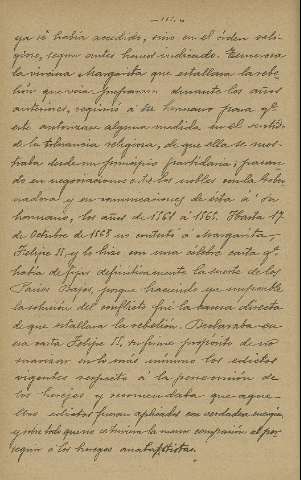 ya se habia accedido, sino en el órden reli-
gioso, segun antes hemos indicado. Temerosa
la virreina Margarita que estallara la rebe-
lión que veia prepararse durante los años
anteriores, requirió á su hermano para qe.
este autorizase alguna medida en el sentido
de la tolerancia religiosa, de que ella se mos-
traba desde un principio partidaria; pasan-
do en negociaciones los nobles con la Gober-
nadora y en comunicaciones de esta á su
hermano, los años de 1561 á 1565. Hasta 17
de Octubre de no contestó á Margarita
Felipe II, y lo hizo con una célebre carta qe.
habia de fijar definitivamente la suerte de los
Paises Bajos, porque haciendo ya imposible
la solución del conflicto fué la causa directa
de que estallara la rebelión. Declaraba en
esa carta Felipe II, su firme propósito de no
suavizar en lo más mínimo los edictos
vigentes respecto á la persecución de
los herejes y recomendaba que aque-
llos edictos fueran aplicados con verdadera energía,
y sobre todo que no se tuviera la menor compasión al per-
seguir á los herejes anabaptistas.